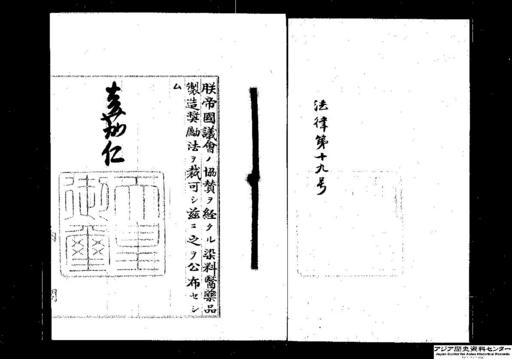 法律第十九号
朕帝國議會ノ協賛ヲ経タル染料醫藥品
製造奬勵法ヲ裁可シ茲ニ之ヲ公布セシ
ム
嘉仁
天皇
御璽
アジア歴史資料センター
Japan Center for Asian Historical Records